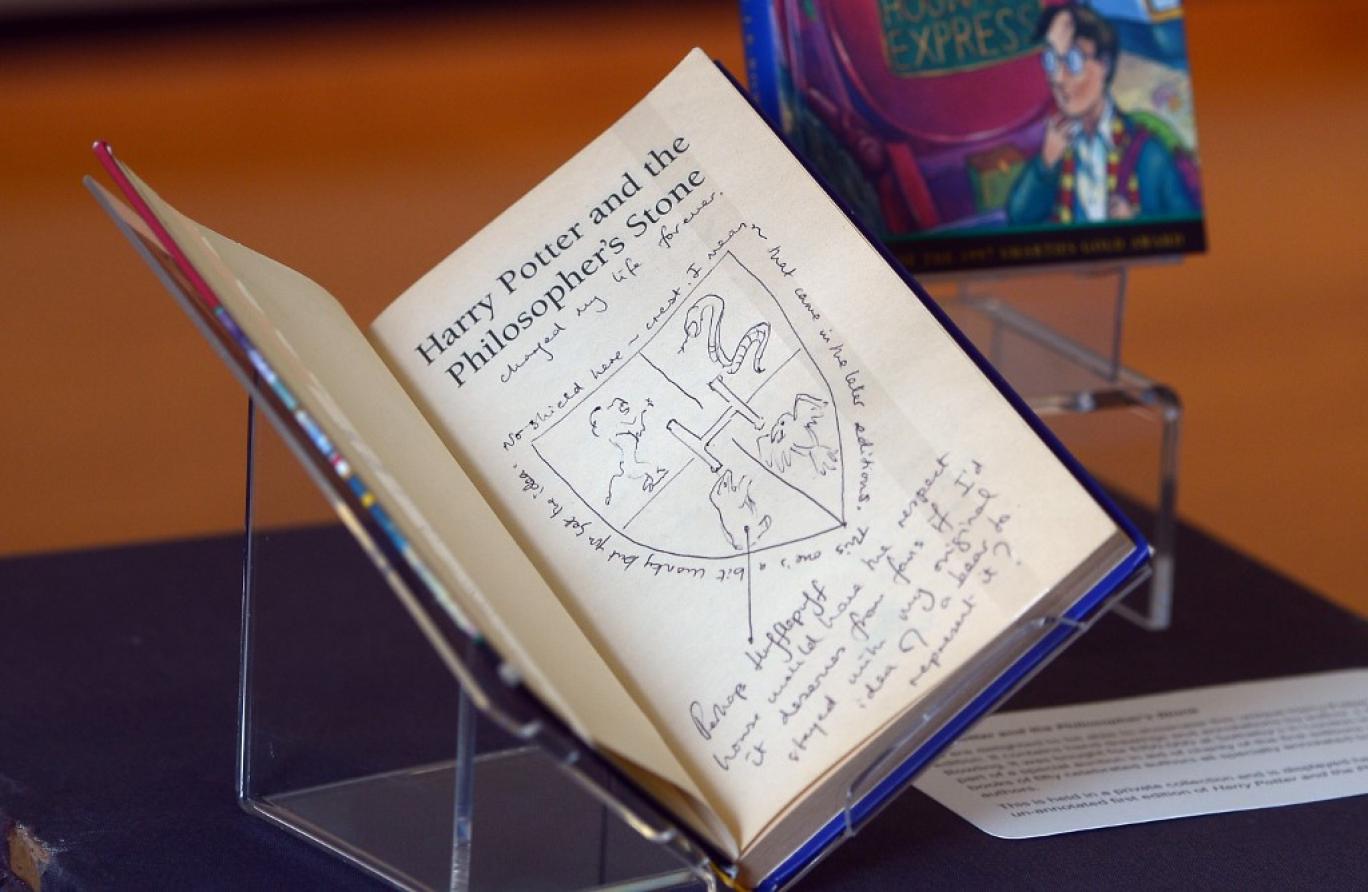 HOGWARTS
EXPRESS
THE 1997 SMARTIES GOLD AWARD
Harry Potter and the
Philosopher's Stone
changed my life forever.
No shield here – crest. I mean
that came in the later editions.
This one's a bit wonky but you get the idea.
Perhaps Hufflepuff
house would have the respect
it deserves from fans if I'd
stayed with my original
idea of a bear to
represent it?
and the Philosopher's Stone
part of a
books of fifty celebrated authors all specially annotated
authors.
This is held in a private collection and is displayed
un-annotated first edition of Harry Potter and the